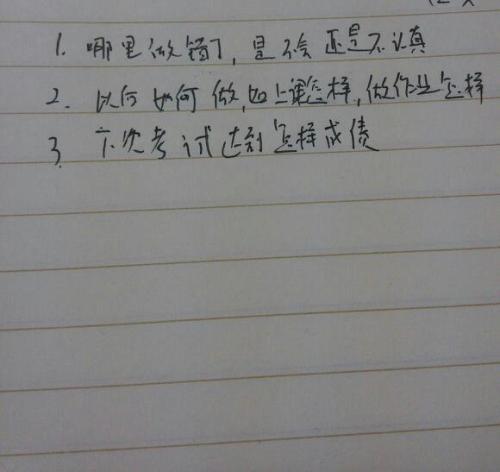 1. 哪里做错了,是不会还是不认真
2. 以何如何做,如上课怎样,做作业怎样
3 下次考试达到怎样成绩